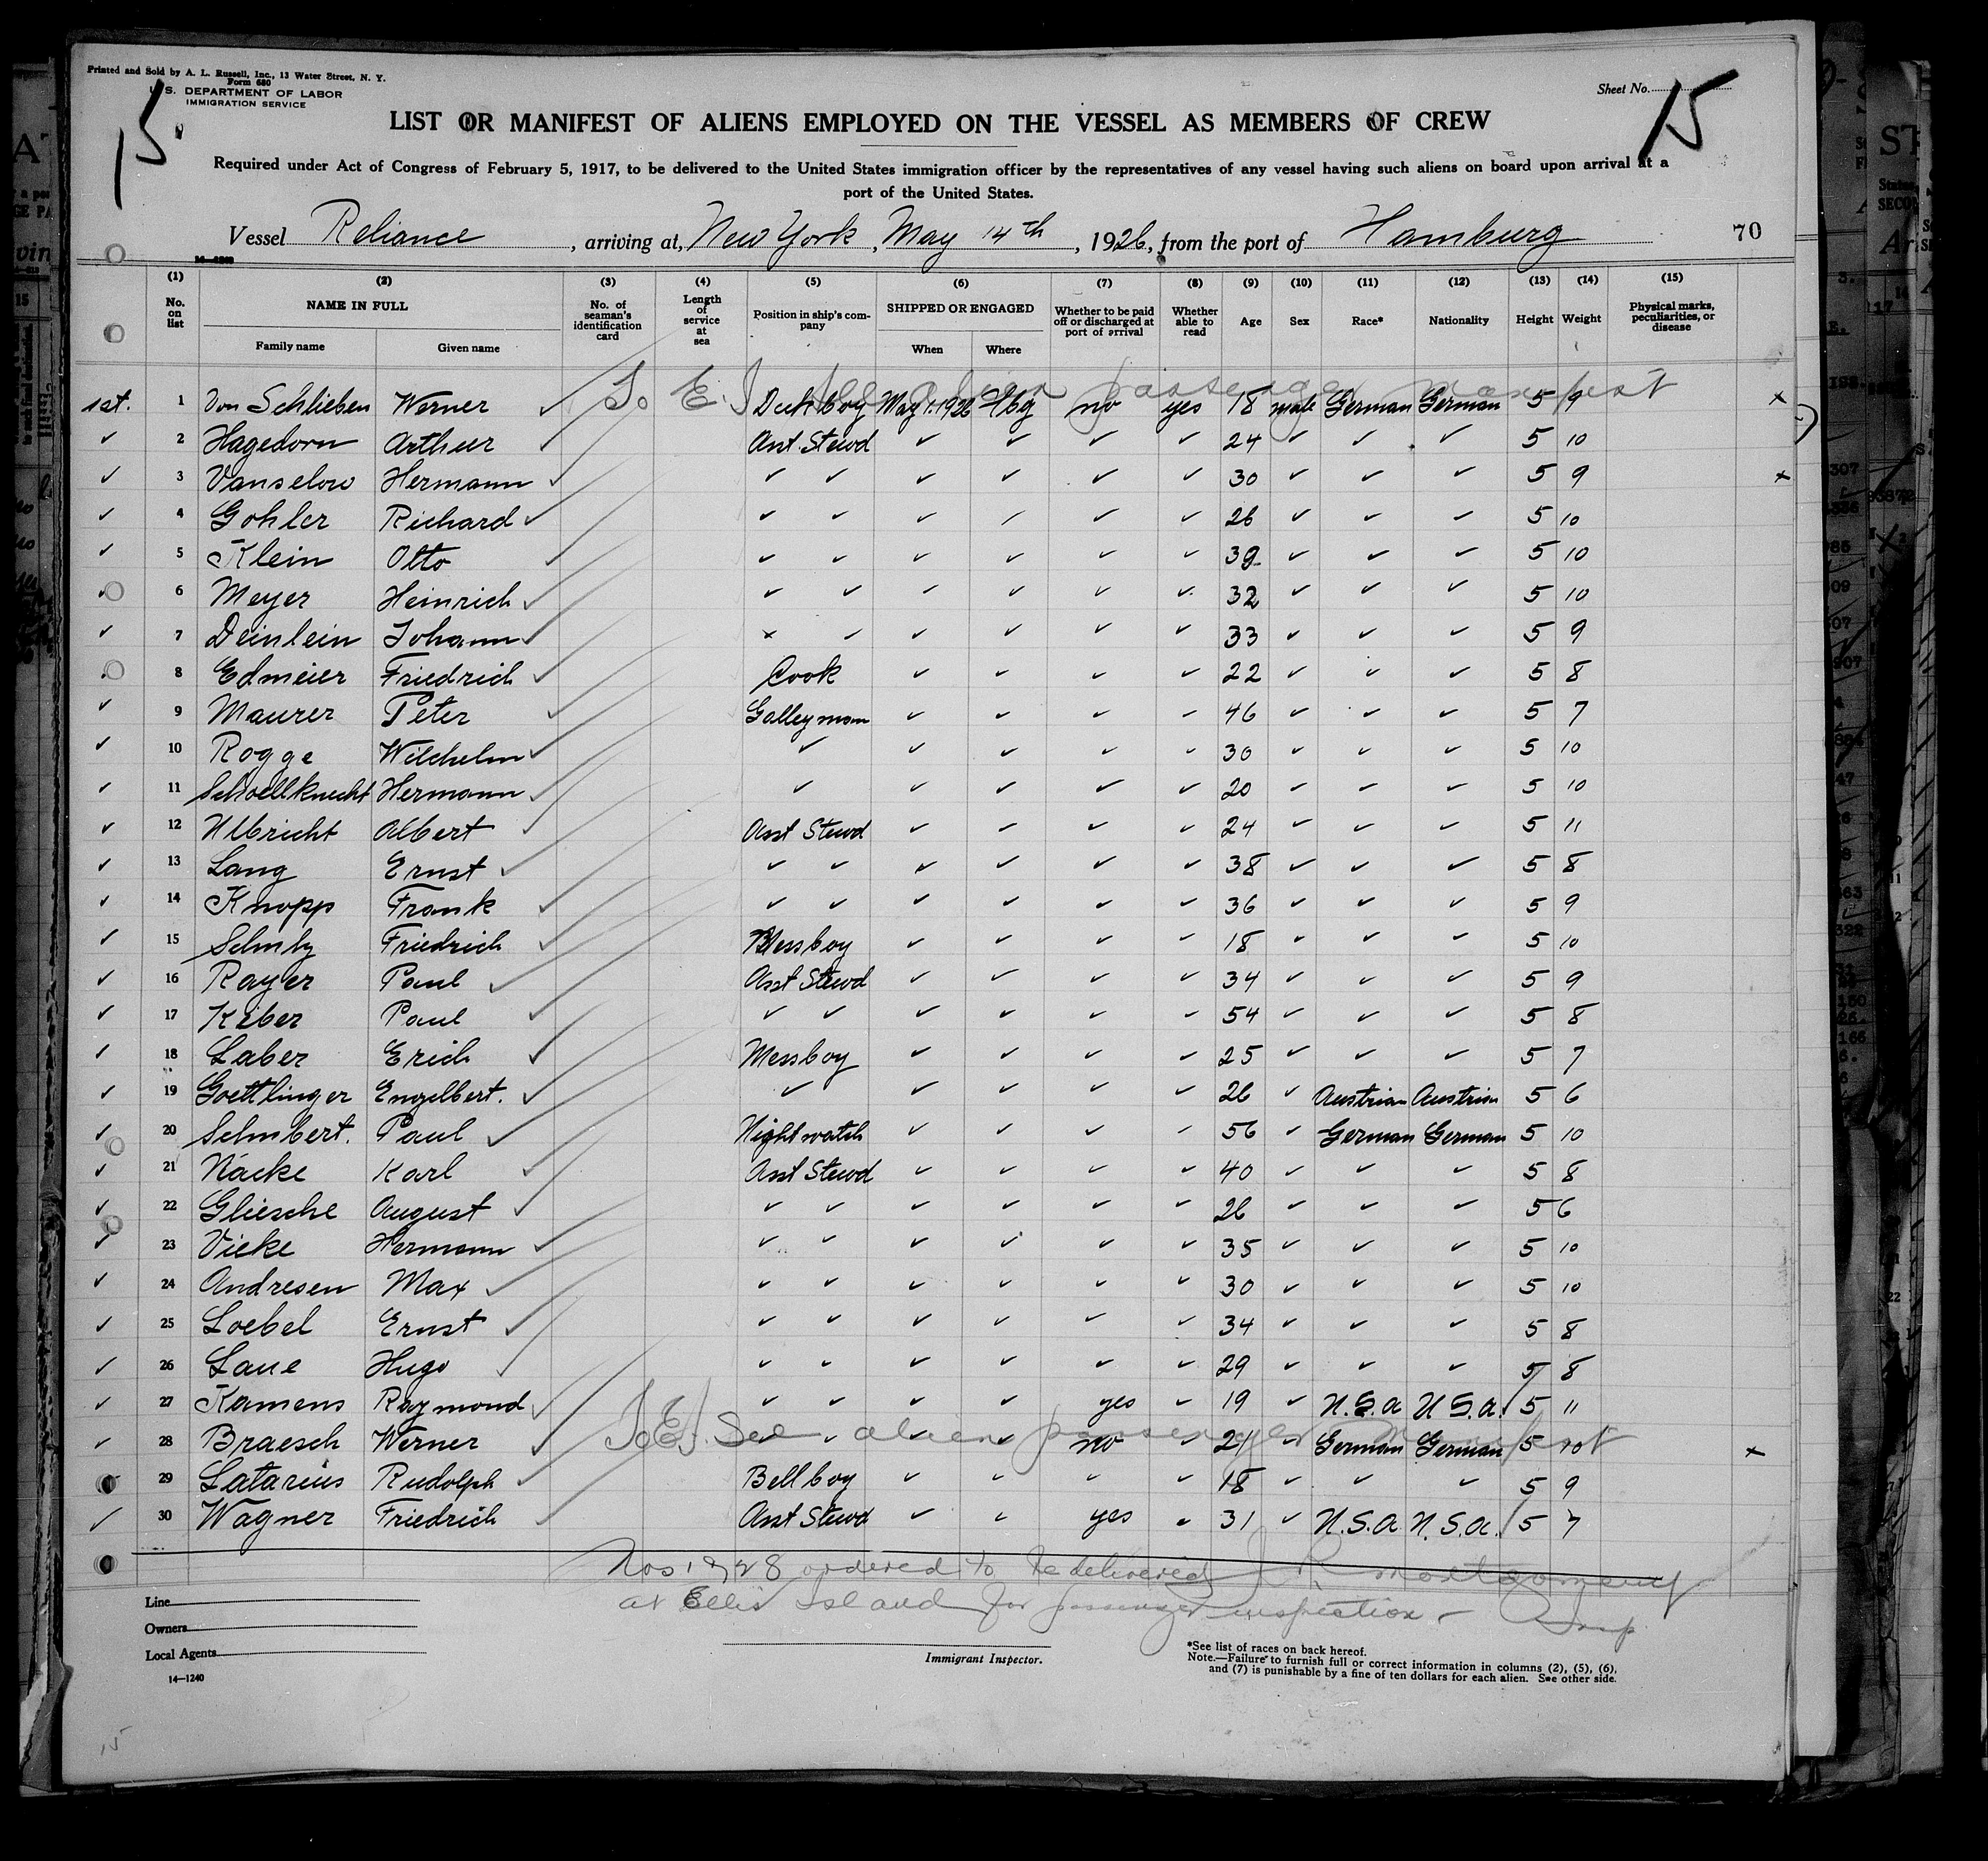 Printed and Sold by A. L. Russell, Inc., 13 Water Street, N. Y.
Form 680
U. S. DEPARTMENT OF LABOR
IMMIGRATION SERVICE
Sheet No.
15
15
LIST OR MANIFEST OF ALIENS EMPLOYED ON THE VESSEL AS MEMBERS OF CREW
Required under Act of Congress of February 5, 1917, to be delivered to the United States immigration officer by the representatives of any vessel having such aliens on board upon arrival at a
port of the United States.
Vessel Reliance, arriving at, New York, May 14th, 1926, from the port of Hamburg 70
14-1240
(1) (2) (3) (4) (5) (6) (7) (8) (9) (10) (11) (12) (13) (14) (15)
No. on list NAME IN FULL Family name Given name No. of seaman's identification card Length of service at sea Position in ship's company SHIPPED OR ENGAGED When Where Whether to be paid off or discharged at port of arrival Whether able to read Age Sex Race* Nationality Height Weight Physical marks, peculiarities, or disease
To E.I. See alien passenger manifest
1st. 1 Von Schlieben Werner ✓ Deck boy May 1. 1926 Hbg no yes 18 male German German 5 9 x
✓ 2 Hagedorn Arthur ✓ Asst. Stewd ✓ ✓ ✓ ✓ 24 ✓ ✓ ✓ 5 10
✓ 3 Vanselow Hermann ✓ ✓ ✓ ✓ ✓ ✓ ✓ 30 ✓ ✓ ✓ 5 9 x
✓ 4 Gohler Richard ✓ ✓ ✓ ✓ ✓ ✓ ✓ 26 ✓ ✓ ✓ 5 10
✓ 5 Klein Otto ✓ ✓ ✓ ✓ ✓ ✓ ✓ 39 ✓ ✓ ✓ 5 10
✓ 6 Meyer Heinrich ✓ ✓ ✓ ✓ ✓ ✓ ✓ 32 ✓ ✓ ✓ 5 10
✓ 7 Deinlein Johann ✓ ✓ ✓ ✓ ✓ ✓ ✓ 33 ✓ ✓ ✓ 5 9
8 Edmeier Friedrich ✓ Cook ✓ ✓ ✓ ✓ 22 ✓ ✓ ✓ 5 8
✓ 9 Maurer Peter ✓ Galleyman ✓ ✓ ✓ ✓ 46 ✓ ✓ ✓ 5 7
✓ 10 Rogge Wilchelm ✓ ✓ ✓ ✓ ✓ ✓ 30 ✓ ✓ ✓ 5 10
✓ 11 Schoellknecht Hermann ✓ ✓ ✓ ✓ ✓ ✓ 20 ✓ ✓ ✓ 5 10
✓ 12 Ulbricht Albert ✓ Asst Stewd ✓ ✓ ✓ ✓ 24 ✓ ✓ ✓ 5 11
✓ 13 Lang Ernst ✓ ✓ ✓ ✓ ✓ ✓ ✓ 38 ✓ ✓ ✓ 5 8
✓ 14 Knopp Frank ✓ ✓ ✓ ✓ ✓ ✓ ✓ 36 ✓ ✓ ✓ 5 9
✓ 15 Friedrich ✓ Messboy ✓ ✓ ✓ ✓ 18 ✓ ✓ ✓ 5 10
✓ 16 Rayer Paul ✓ Asst Stewd ✓ ✓ ✓ ✓ 34 ✓ ✓ ✓ 5 9
✓ 17 Keber Paul ✓ ✓ ✓ ✓ ✓ ✓ ✓ 54 ✓ ✓ ✓ 5 8
✓ 18 Laber Erich ✓ Messboy ✓ ✓ ✓ ✓ 25 ✓ ✓ ✓ 5 7
✓ 19 Goettlinger Engelbert. ✓ ✓ ✓ ✓ ✓ ✓ 26 ✓ Austrian Austrian 5 6
✓ 20 Schubert. Paul ✓ Nightwatch ✓ ✓ ✓ ✓ 56 ✓ German German 5 10
✓ 21 Näcke Karl ✓ Asst Stewd ✓ ✓ ✓ ✓ 40 ✓ ✓ ✓ 5 8
✓ 22 Gliesche August ✓ ✓ ✓ ✓ ✓ ✓ ✓ 26 ✓ ✓ ✓ 5 6
✓ 23 Vieke Hermann ✓ ✓ ✓ ✓ ✓ ✓ ✓ 35 ✓ ✓ ✓ 5 10
✓ 24 Andresen Max ✓ ✓ ✓ ✓ ✓ ✓ ✓ 30 ✓ ✓ ✓ 5 10
✓ 25 Loebel Ernst ✓ ✓ ✓ ✓ ✓ ✓ ✓ 34 ✓ ✓ ✓ 5 8
✓ 26 Laue Hugo ✓ ✓ ✓ ✓ ✓ ✓ ✓ 29 ✓ ✓ ✓ 5 8
✓ 27 Kamens Raymond ✓ ✓ ✓ ✓ ✓ yes ✓ 19 ✓ U.S.A U.S.A. 5 11
To E.I. See alien passenger manifest
✓ 28 Braesch Werner ✓ ✓ ✓ ✓ ✓ no ✓ 21 ✓ German German 5 10 x
29 Latarius Rudolph ✓ Bellboy ✓ ✓ ✓ ✓ 18 ✓ ✓ ✓ 5 9
✓ 30 Wagner Friedrich ✓ Asst Stewd ✓ ✓ yes ✓ 31 ✓ U.S.A U.S.A. 5 7
Nos 1 & 28 ordered to be delivered J. R. Montgomery
at Ellis Island for passenger inspection - Insp
Line
Owners
Local Agents
14—1240
Immigrant Inspector.
*See list of races on back hereof.
Note.—Failure to furnish full or correct information in columns (2), (5), (6),
and (7) is punishable by a fine of ten dollars for each alien. See other side.
15